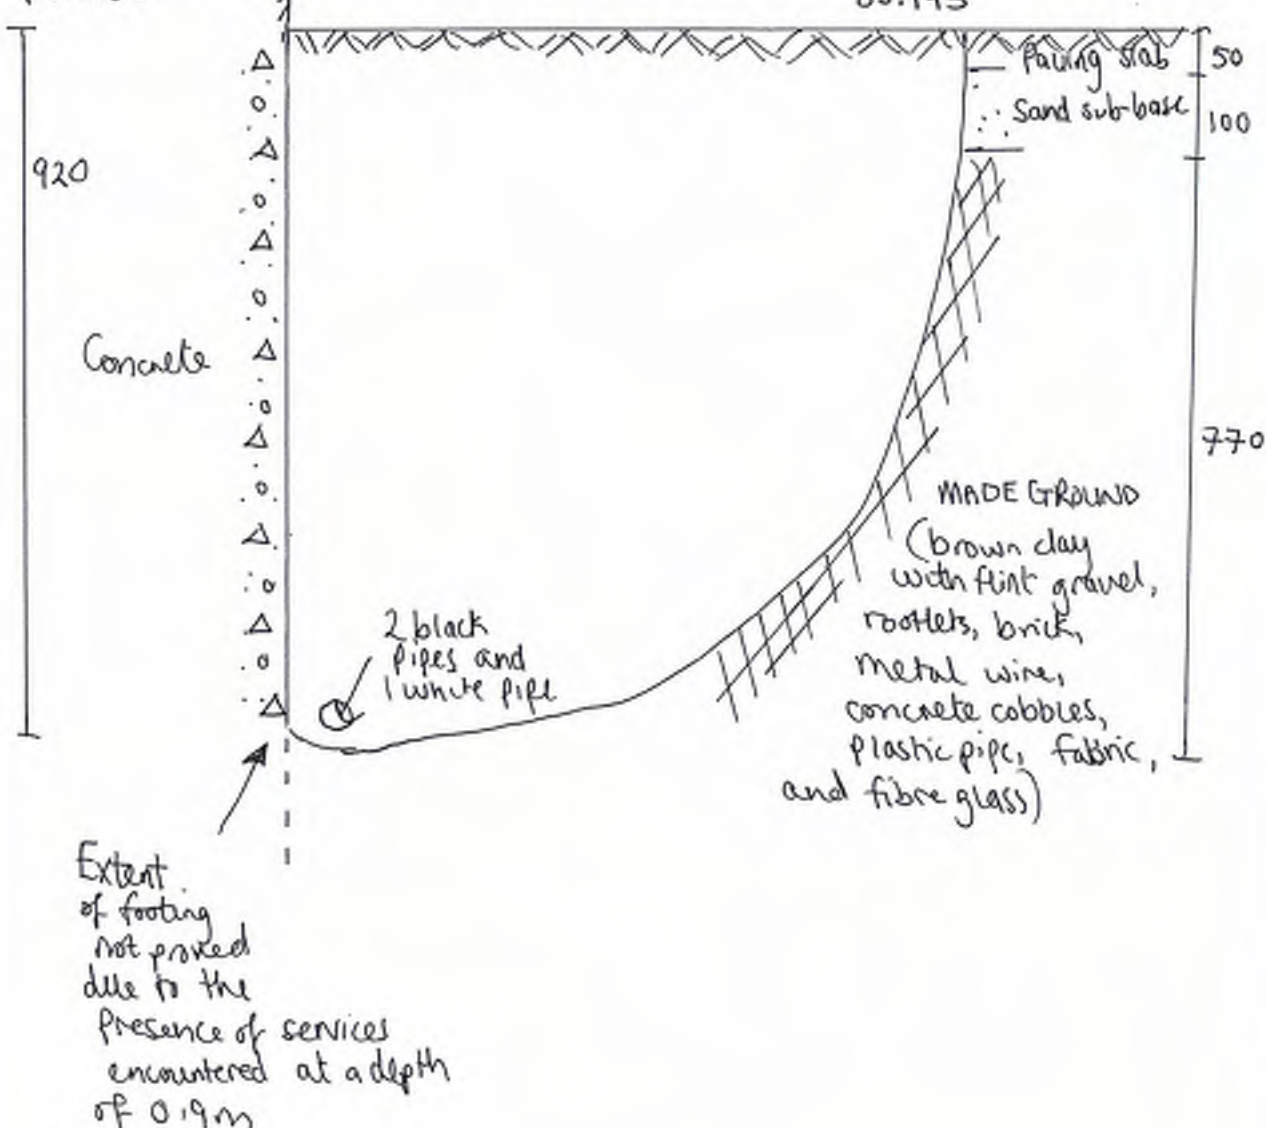 50
Paving slab
Sand sub-base
100
920
Concrete
770
MADE GROUND
(brown clay
with flint gravel,
rootlets, brick,
metal wire,
concrete cobbles,
plastic pipe, fabric,
and fibre glass)
2 black
pipes and
1 white pipe
Extent
of footing
not proved
due to the
presence of services
encountered at a depth
of 0.9m